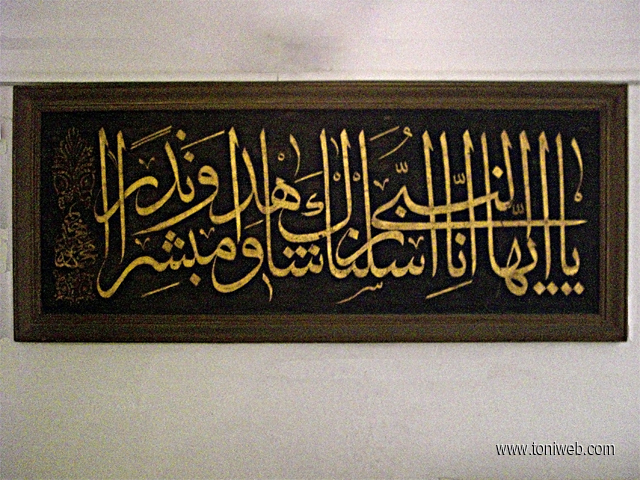 يا ايها النبى انا ارسلناك شاهدا ومبشرا ونذيرا
www.toniweb.com